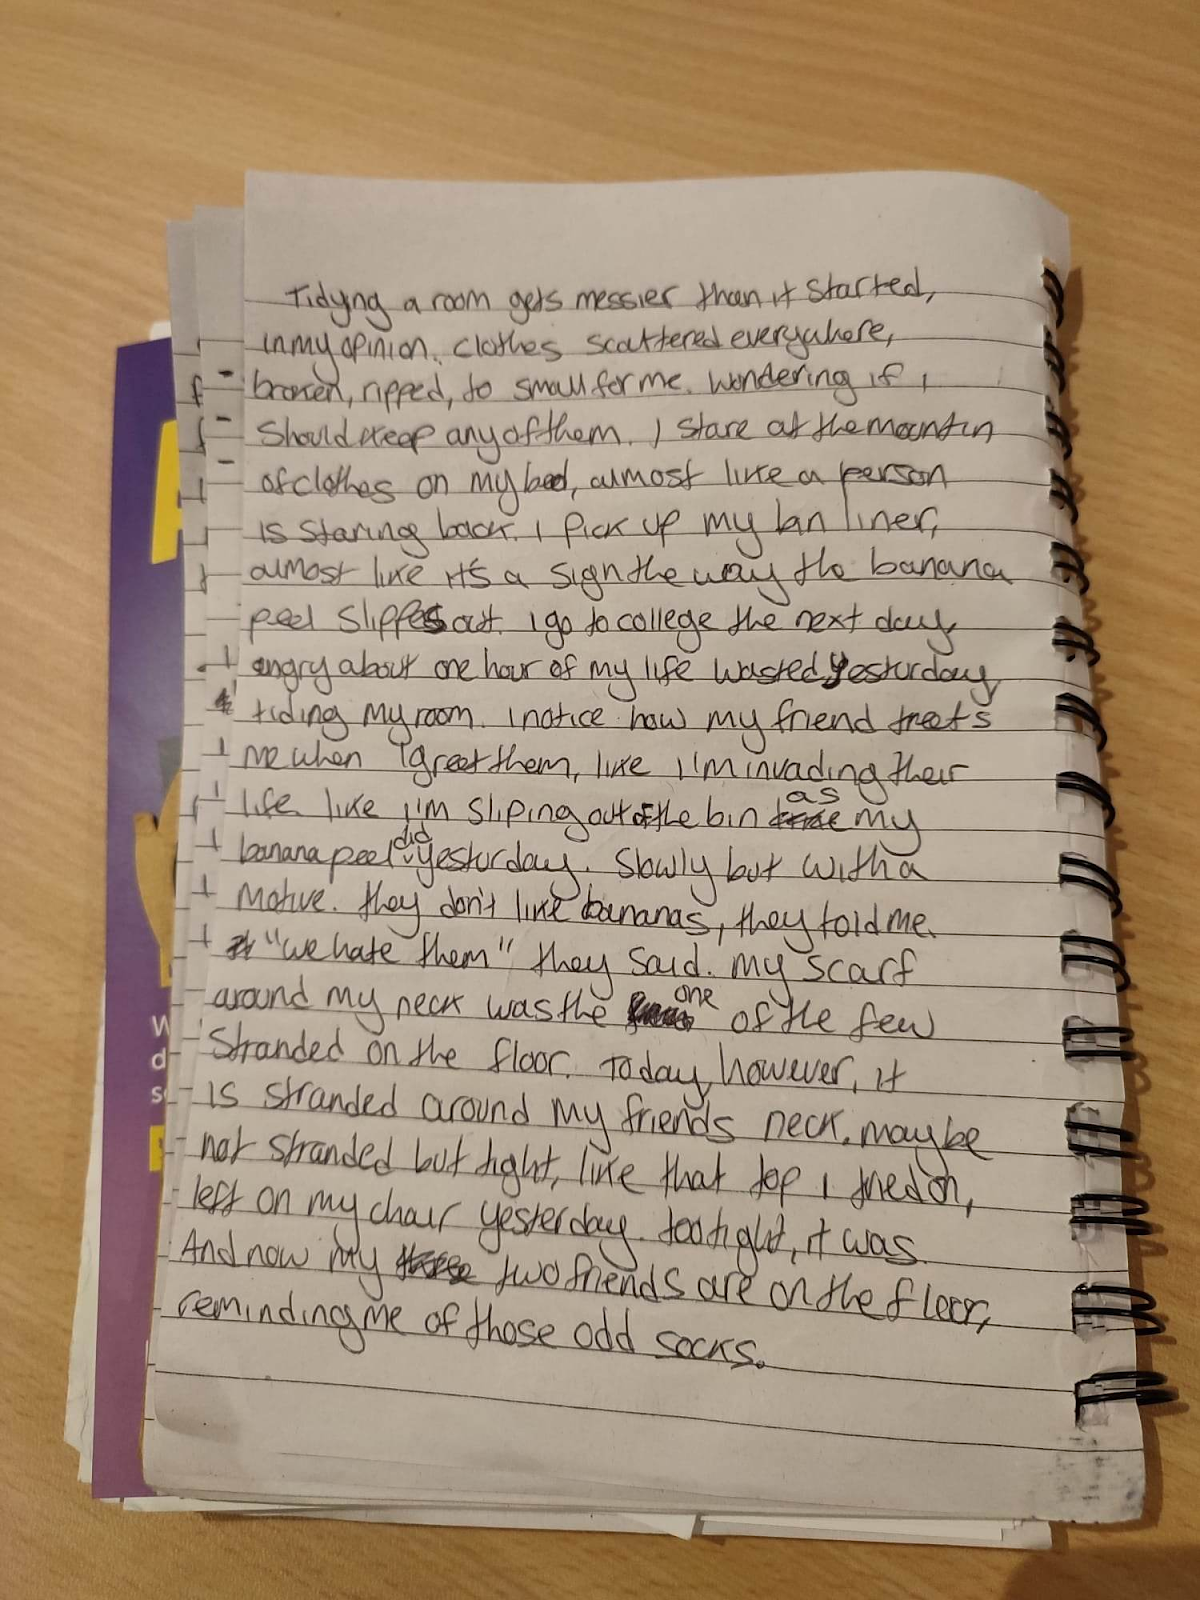 Tidying a room gets messier than it started,
in my opinion. clothes scattered everywhere,
broken, ripped, to small for me. Wondering if i
should keep any of them. I stare at the mountin
of clothes on my bed, almost like a person
is staring back. I pick up my bin liner,
almost like it's a sign the way the banana
peel slippes out. I go to college the next day,
angry about one hour of my life wasted, yesturday,
tiding my room. I notice how my friend treets
me when I greet them, like I'm invading their
life. like I'm sliping out of the bin as my
banana peel did yesturday. Slowly but with a
motive. they don't like bananas, they told me.
"we hate them" they said. My scarf
around my neck was the one of the few
stranded on the floor. Today, however, it
is stranded around my friends neck. maybe
not stranded but tight, like that top i tried on,
left on my chair yesterday. too tight, it was.
And now my two friends are on the floor,
reminding me of those odd socks.
W
d
s